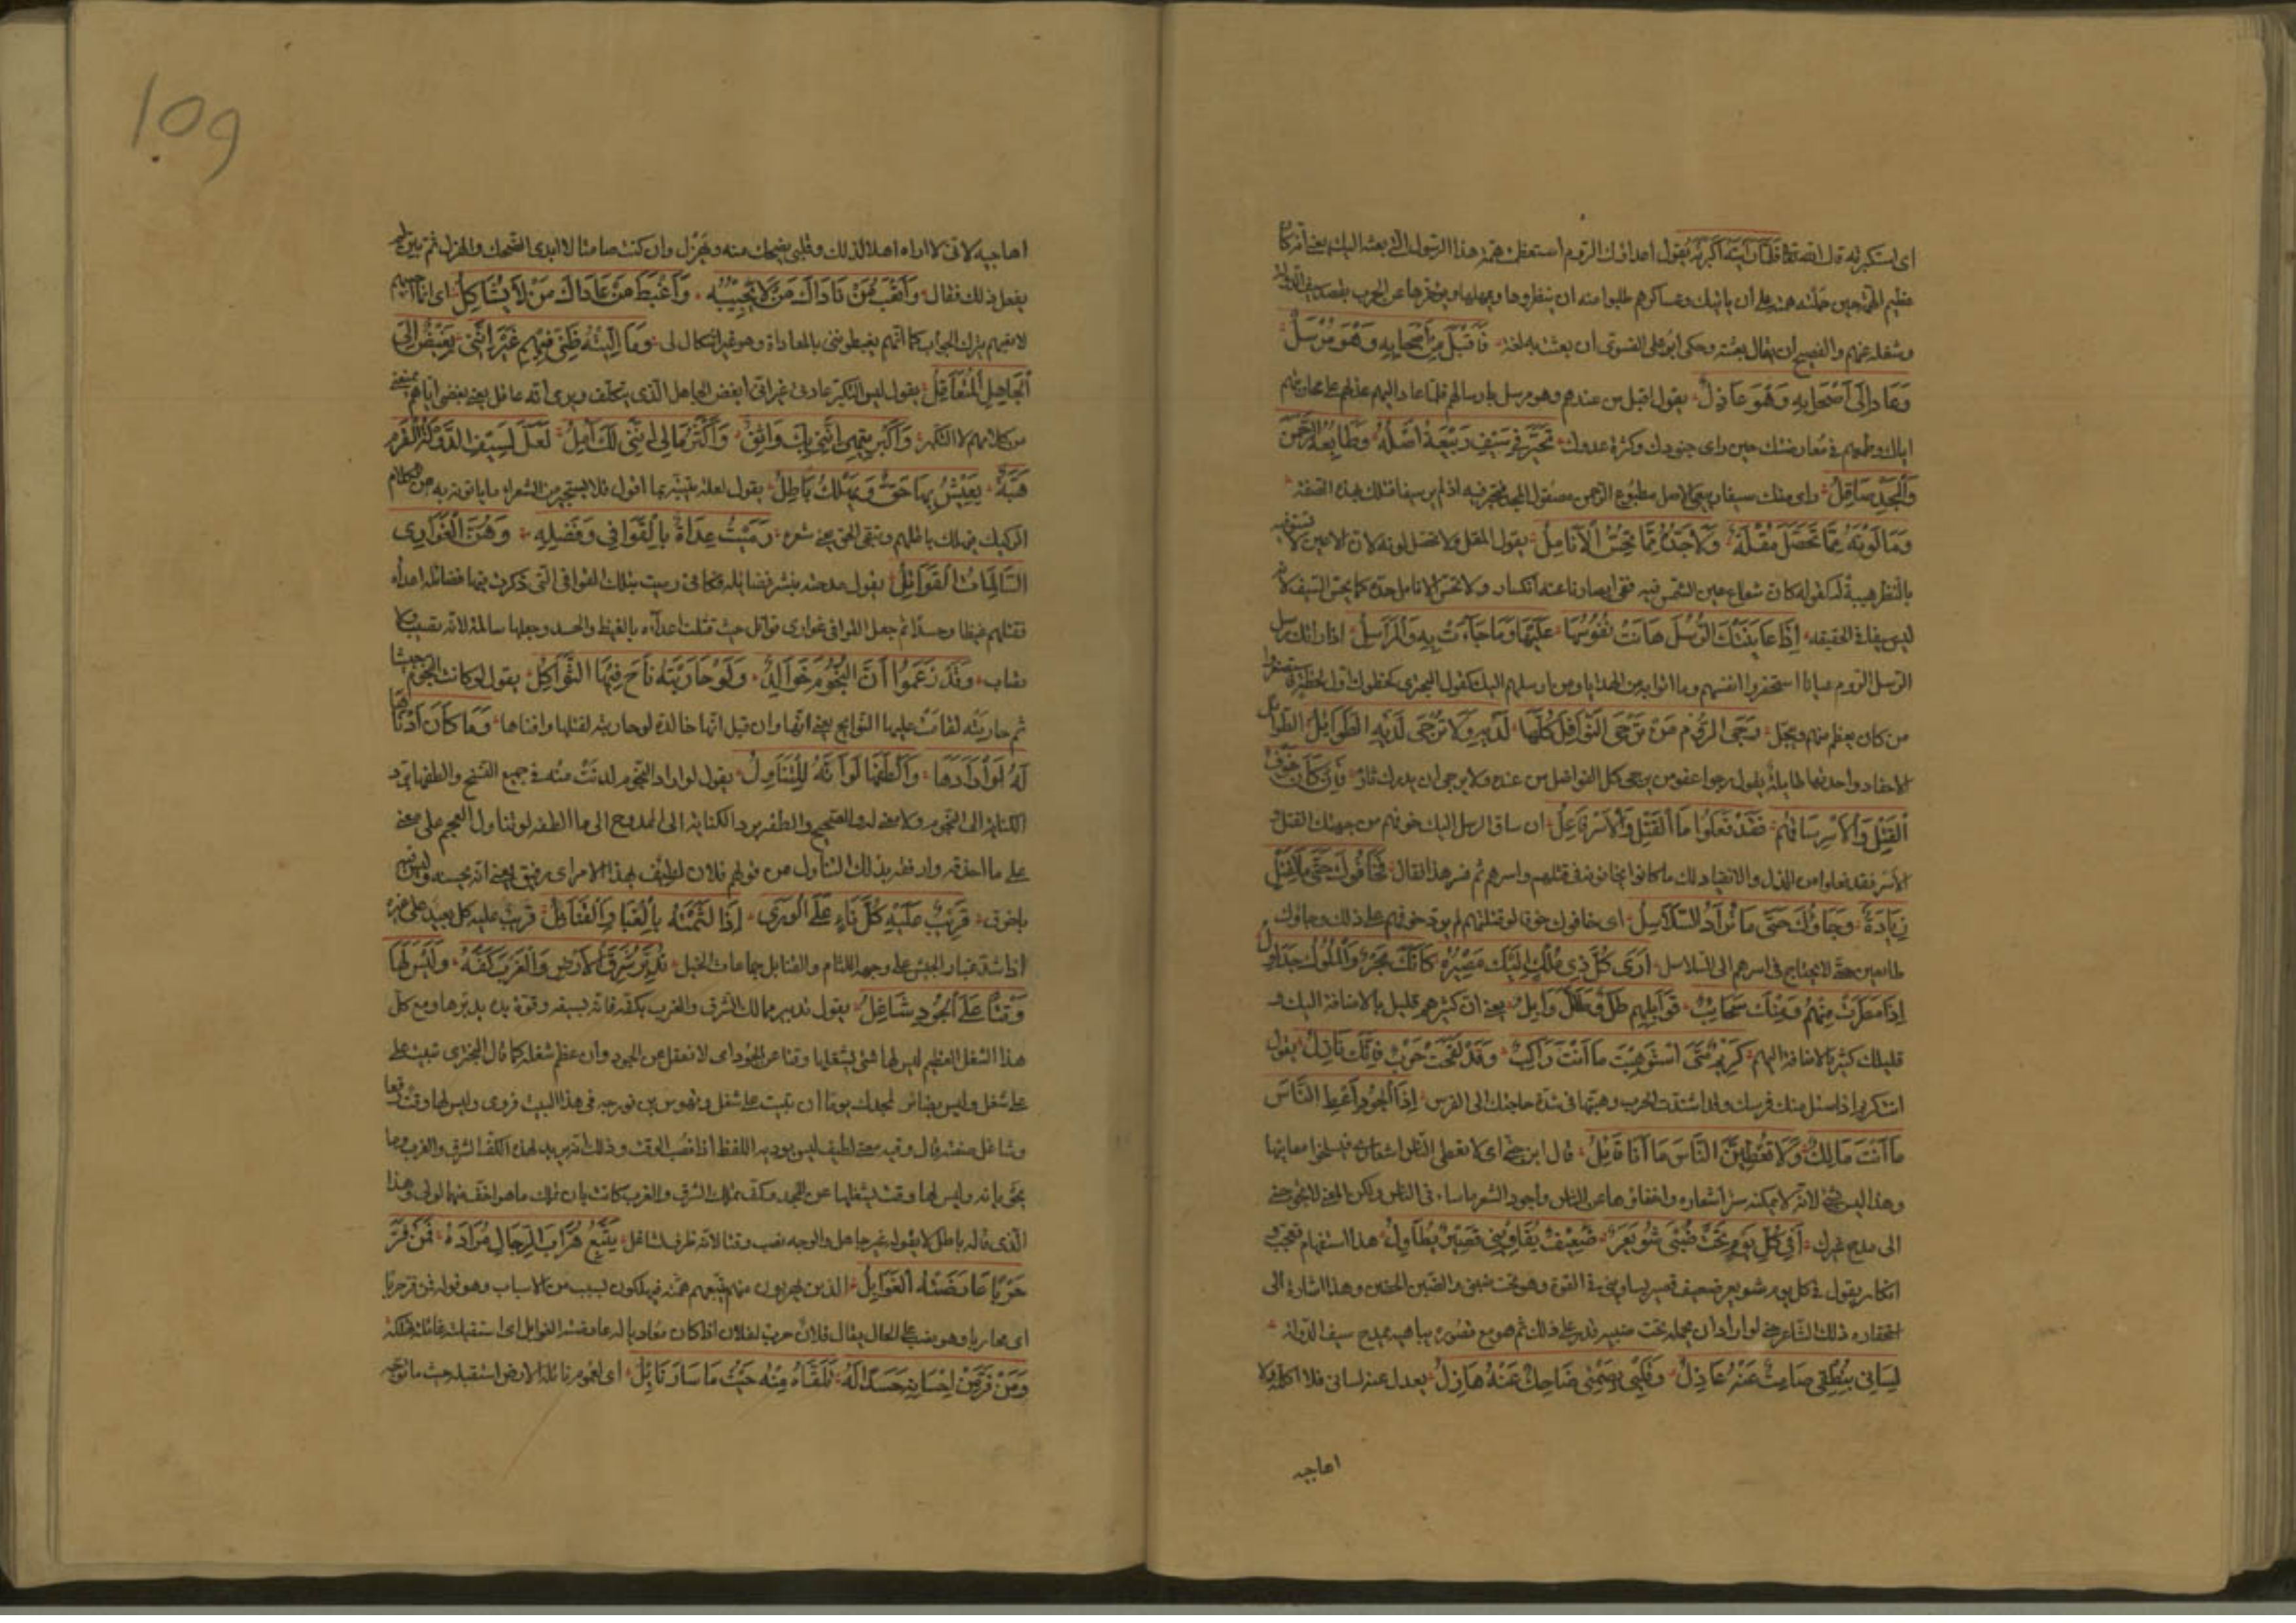 اى استكبرته قال الله تعالى فلما رأينه أكبرنه يقول اصدقاؤك الروم استعظمت همة هذا الرسول الذى بعثته اليك يعنى أنه كان
عظيم الهمة حين حملته همته على أن يأتيك وعساكرهم طلبوا منه أن ينظروها ويمهلها ويؤخرها عن الحرب بقصد سيف الدولة
وشغله عنهم والفصيح أن يقال بعثته وحكى ابو على الفسوى أن بعثت به لغة فَأَقْبَلَ مِنْ أَصْحَابِهِ وَهُوَ مُرْسَلٌ
وَعَادَ إِلَى أَصْحَابِهِ وَهُوَ عَاذِلُ يقول اقبل من عندهم وهو مرسل بارسالهم فلما عاد اليهم عذلهم على محاربتهم
اياك وطمعهم فى معارضتك حين راى جنودك وكثرة عدوك تَحَيَّرَ فِي سَيْفٍ رَبِيعَةُ أَصْلُهُ وَطَابِعُهُ الرَّحْمَنُ
وَالْمَجْدُ صَاقِلُ راى منك سيفا ربيعى الاصل مطبوع الرحمن مصقول المجد فتحير فيه اذ لم ير سيفا قبلك بهذه الصفة
وَمَا لَوْنُهُ مِمَّا تُحَصِّلُ مُقْلَةٌ وَلَا حَدُّهُ مِمَّا تَجُسُّ الْأَنَامِلُ يقول المقل لا تحصل لونه لان الاعين لا تستوفيه
بالنظر هيبة له كقوله كأن شعاع عين الشمس فيه ففى ابصارنا عنه انكسار ولا تجس الانامل حده كما يجس السيف لانه
ليس سيفا فى الحقيقه إِذَا عَايَنَتْكَ الرُّسْلُ هَانَتْ نُفُوسُهَا عَلَيْهَا وَمَا جَاءَتْ بِهِ وَالْمَرَاسِلُ اذا راتك رسل
الروم عيانا استحقروا انفسهم وما اتوا به من الهدايا ومن ارسلهم اليك كقول البحترى لحظوك اول لحظة فاستصغروا
من كان يعظم منهم ويبجل رَجَى الرُّومُ مَنْ تُرْجَى النَّوَافِلُ كُلُّهَا لَدَيْهِ وَلَا تُرْجَى لَدَيْهِ الطَّوَائِلُ الطوائل
الاحقاد واحدتها طائلة يقول رجوا عفو من يرجى كل الفواضل من عنده ولا يرجى ان يدرك ثار فَإِنْ كَانَ خَوْفُ
الْقَتْلِ وَالْأَسْرِ سَاقَهُمْ فَقَدْ فَعَلُوا مَا الْقَتْلُ وَالْأَسْرُ فَاعِلُ ان ساق الرسل اليك خوفهم من جهتك القتل و
الاسر فقد فعلوا من الذل والانقياد لك ما كانوا يخافونه فى قتلهم واسرهم ثم فسر هذا فقال فَخَافُوكَ حَتَّى مَا لِقَتْلٍ
زِيَادَةٌ وَجَاؤُكَ حَتَّى مَا تُرَادُ السَّلَاسِلُ اى خافوك خوفا لو قتلتهم لم يزد خوفهم على ذلك وجاؤك
طائعين حتى لا يحتاج فى اسرهم الى السلاسل أَرَى كُلَّ ذِي مُلْكٍ إِلَيْكَ مَصِيرُهُ كَأَنَّكَ بَحْرٌ وَالْمُلُوكُ جَدَاوِلُ
إِذَا مَطَرَتْ مِنْهُمْ وَمِنْكَ سَحَائِبٌ فَوَابِلُهُمْ طَلٌّ وَطَلُّكَ وَابِلُ يعنى ان كثيرهم قليل بالاضافة اليك و
قليلك كثير بالاضافة اليهم كَرِيمٌ مَتَى اسْتُوهِبْتَ مَا أَنْتَ رَاكِبٌ وَقَدْ لَقِحَتْ حَرْبٌ فَإِنَّكَ نَازِلُ يقول
انت كريم اذا سئل منك فرسك وقد اشتدت الحرب وهبتها فى شدة حاجتك الى الفرس إِذَا الْجُودُ أَعْطِ النَّاسَ
مَا أَنْتَ مَالِكٌ وَلَا تُعْطِيَنَّ النَّاسَ مَا أَنَا قَائِلُ قال ابن جنى اى لا تعطى الناس اشعارى فيسلخوا معانيها
وهذا ليس بشىء لانه لا يمكنه ستر أشعاره واخفاؤها عن الناس وأجود الشعر ما سار فى الناس ولكن المعنى لا تحوجنى
الى مدح غيرك أَفِي كُلِّ يَوْمٍ تَحْتَ ضِبْنِي شُوَيْعِرٌ ضَعِيفٌ يُقَاوِينِي قَصِيرٌ يُطَاوِلُ هذا استفهام تعجب و
انكار يقول فى كل يوم شويعر ضعيف قصير يساوينى فى القوة وهو تحت ضبنى والضبن الحضن وهذا اشارة الى
احتقاره ذلك الشاعر حتى لو اراد ان يحمله تحت ضبنه قدر على ذلك ثم هو مع قصوره يباهيه بمدح سيف الدولة
لِسَانِي بِنُطْقِي صَامِتٌ عَنْهُ عَادِلُ وَقَلْبِي بِصَمْتِي ضَاحِكٌ مِنْهُ هَازِلُ يعدل عنه لسانى فلا اكلمه ولا
اهاجيه
1.09
اهاجيه لانى لا اراه اهلا لذلك وقلبى يضحك منه ويهزل وان كنت صامتا لا ابدى الضحك والهزل ثم بين لم
يفعل ذلك فقال وَأَتْعَبُ مَنْ نَادَاكَ مَنْ لَا تُجِيبُهُ وَأَغْيَظُ مَنْ عَادَاكَ مَنْ لَا تُشَاكِلُ اى انما
لاتعبهم بترك الجواب كما انهم يغيظوننى بالمعاداة وهم غير اشكال لى وَمَا التِّيهُ طِبِّي فِيهِمِ غَيْرَ أَنَّنِي بَغِيضٌ إِلَيَّ
الْجَاهِلُ الْمُتَعَاقِلُ يقول ليس التكبر عادتى غير انى ابغض الجاهل الذى يتكلف ويرى أنه عاقل يعنى بغضى اياهم يمنعنى
من كلامهم لا التكبر وَأَكْبَرُ تِيهِي أَنَّنِي بِكَ وَاثِقٌ وَأَكْثَرُ مَالِي أَنَّنِي لَكَ آمِلُ لَعَلَّ لِسَيْفِ الدَّوْلَةِ الْقَرْمِ
هَبَّةً يَعِيشُ بِهَا حَقٌّ وَيَهْلِكُ بَاطِلُ يقول لعله ينتبه بما اقول فلا يستجيز من الشعراء ما ياتونه به من الكلام
الركيك فيهلك باطلهم ويبقى الحق يعنى شعره رَمَيْتُ عِدَاهُ بِالْقَوَافِي وَفَضْلِهِ وَهُنَّ الْغَوَازِي
السَّالِمَاتُ الْقَوَاتِلُ يقول مدحته بنشر فضائله فكانى رميت بتلك القوافى التى ذكرت فيها فضائله اعداءه
فقتلهم غيظا وحسدا ثم جعل القوافى غوازى قواتل حيث قتلت اعداءه بالغيظ والحسد وجعلها سالمة لانها تصيب ولا
تصاب وَقَدْ زَعَمُوا أَنَّ النُّجُومَ خَوَالِدٌ وَلَوْ حَارَبَتْهُ نَاحَ فِيهَا الثَّوَاكِلُ يقول لو كانت النجوم جيشا
ثم حاربته لقامت عليها النوائح يعنى انها وان قيل انها خالدة لو حاربته لقتلها وافناها وَمَا كَانَ أَدْنَاهَا
لَهُ لَوْ أَرَادَهَا وَأَلْطَفَهَا لَوْ أَنَّهُ الْمُتَنَاوِلُ يقول لو اراد النجوم لدنت منه فى جميع النسخ والطفها يرد
الكناية الى النجوم ولا معنى له والصحيح والطفه برد الكناية الى الممدوح اى ما الطفه لو تناول النجم على معنى
على ما احذقه وارفقه بذلك التناول من قولهم فلان لطيف بهذا الامر اى رفيق يعنى انه يحسنه وليس فيه
باخرق قَرِيبٌ عَلَيْهِ كُلُّ نَاءٍ عَلَى الْوَرَى إِذَا لَثَّمَتْهُ بِالْغُبَارِ الْقَنَابِلُ قريب عليه كل بعيد على غيره
اذا شد غبار الجيش على وجهه اللثام والقنابل جماعات الخيل تُدَبِّرُ شَرْقَ الْأَرْضِ وَالْغَرْبَ كَفُّهُ وَلَيْسَ لَهَا
وَقْتًا عَلَى الْجُودِ شَاغِلُ يقول تدبير ممالك الشرق والغرب بكفه فانه بسيفه وقوة يده يدبرها ومع كل
هذا الشغل العظيم ليس لها شىء يشغلها وقتا عن الجود اى لا تغفل عن الجود وان عظم شغله كما قال البحترى تبيت على
على شغل وليس بضائر لمجدك يوما ان تبيت على شغل وتهوس بن فورجه فى هذا البيت فروى وليس لها وقت رفعا
وشاغل صفته قال وفيه معنى لطيف ليس يوديه اللفظ اذا نصب الوقت وذلك انه يريد لهذه الكف الشرق والغرب وما
يحويانه وليس لها وقت يشغلها عن الجود وكف تملك الشرق والغرب كانت بان تملك ما هو اخف منهما اولى وهذا
الذى قاله باطل لا يقوله غير جاهل والوجه نصب وقتا لانه ظرف لشاغل يُتَبِّعُ هُرَّابَ الرِّجَالِ مُرَادُهُ فَمَنْ فَرَّ
حَرْبًا عَارَضَتْهُ الْغَوَائِلُ الذين يهربون منه يتبعهم همته فيهلكون بسبب من الاسباب وهو قوله فمن فر حربا
اى محاربا وهو نصب على الحال يقال فلان حرب لفلان اذا كان معاديا له عارضته الغوائل اى استقبلته غائلة تهلكه
وَمَنْ فَرَّ مِنْ إِحْسَانِهِ حَسَدًا لَهُ تَلَقَّاهُ مِنْهُ حَيْثُ مَا سَارَ نَائِلُ اى لعموم نائله الارض استقبله حيث ما توجه